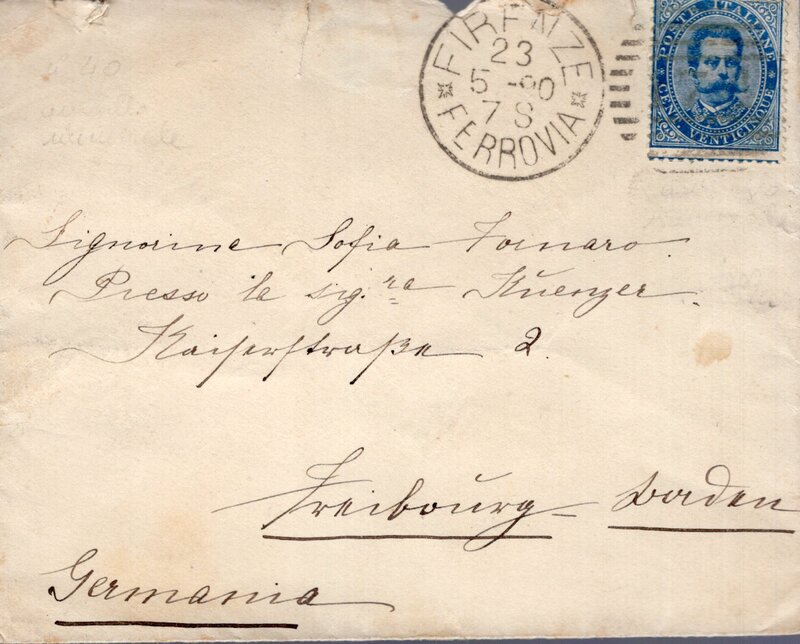 FIRENZE
23
5 -90
7 S
FERROVIA
POSTE ITALIANE
CENT. VENTICINQUE
Signorina Sofia Fornaro.
Presso la sig.ra Kuenzer.
Kaiserstraße 2.
Freibourg - Baden
Germania
N° 40